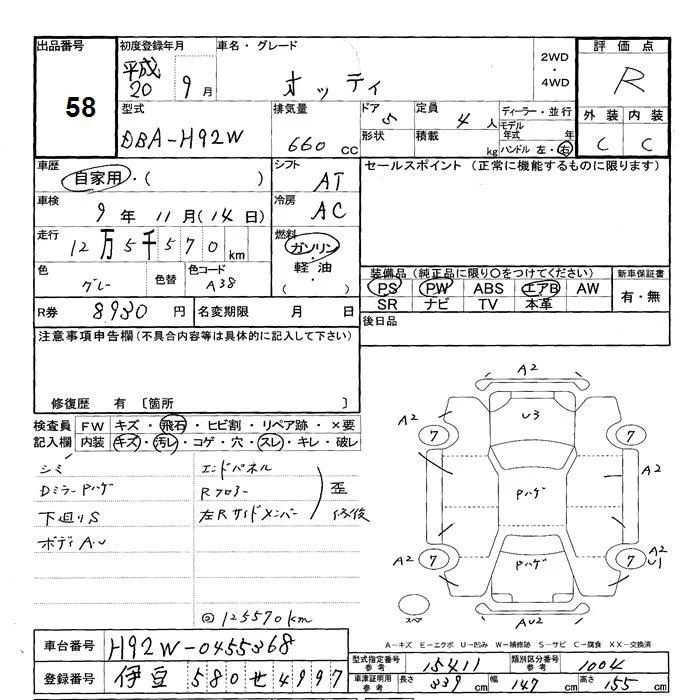 出品番号 58
初度登録年月 平成20 9月
車名・グレード オッティ
2WD・4WD
評価点 R
型式 DBA-H92W
排気量 660 CC
ドア 5 形状
定員 4 人 積載 kg
ディーラー・並行
モデル年式 年
ハンドル 左・右
外装 内装
C C
車歴 自家用・( )
シフト AT
セールスポイント (正常に機能するものに限ります)
車検 9年 11月(14日)
冷房 AC
走行 12万5千570km
燃料 ガソリン・軽油・( )
色 グレー 色替 色コード A38
装備品(純正品に限り〇をつけてください) 新車保証書
PS PW ABS エアB AW 有・無
SR ナビ TV 本革
R券 8930 円 名変期限 月 日
後日品
注意事項申告欄(不具合内容等は具体的に記入して下さい)
修復歴 有 〔箇所 〕
検査員 FW キズ・飛石・ヒビ割・リペア跡・×要
記入欄 内装 キズ・汚レ・コゲ・穴・スレ・キレ・破レ
シミ エンドパネル
Dミラー Pハゲ Rフロアー 歪
下廻りS 左Rサイドメンバー 修復
ボディA・U
125570km
A2
A2 U3
7 7
A2
Pハゲ
A2 7 Pハゲ 7 A2 U1
スペア
AU2
A-キズ E-エクボ U-凹み W-補修跡 S-サビ C-腐食 XX-交換済
車台番号 H92W-0455368
登録番号 伊豆 580 せ 4997
型式指定番号 参考 15411 類別区分番号 参考 1004
車庫証明用 参考 長さ 339 cm 幅 147 cm 高さ 155 cm